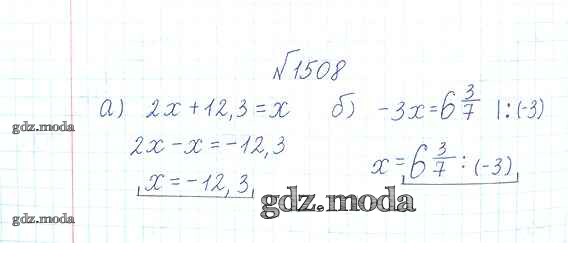 №1508
а) 2x + 12,3 = x
2x - x = -12,3
x = -12,3
б) -3x = 6 3/7 |: (-3)
x = 6 3/7 : (-3)
gdz.moda
gdz.moda
gdz.moda